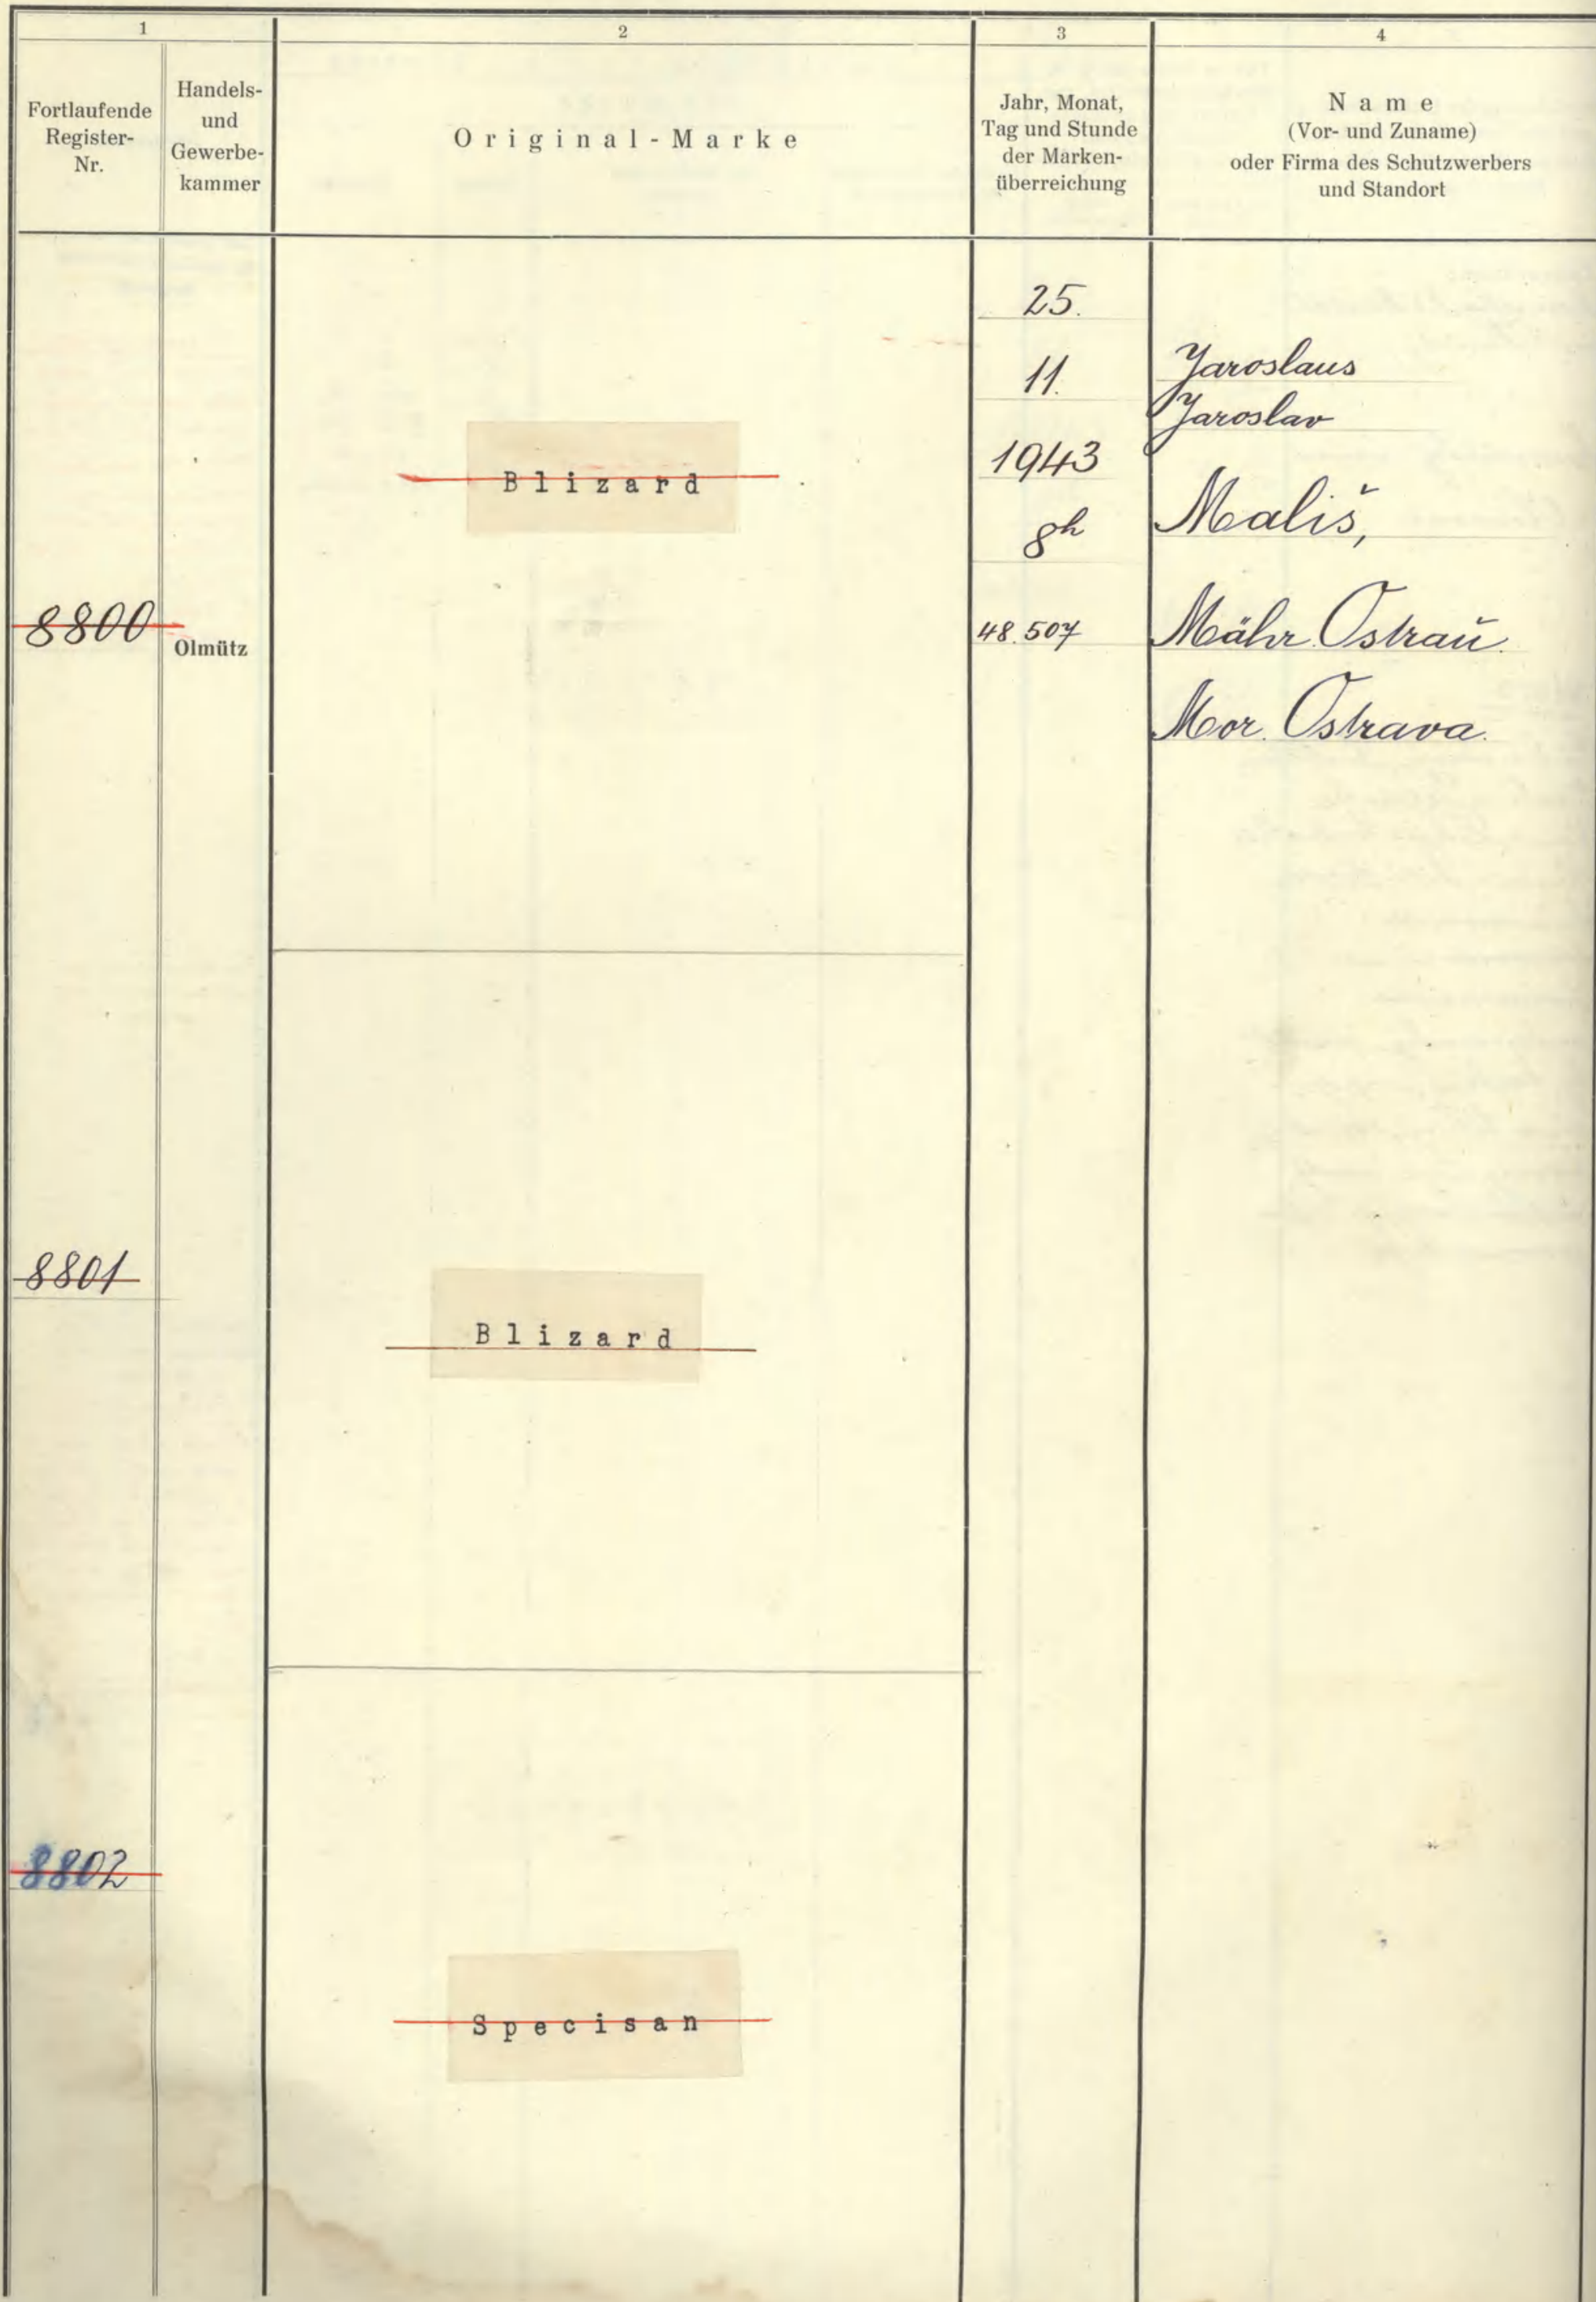 1
2
3
4
Fortlaufende
Register-
Nr.
Handels-
und
Gewerbe-
kammer
Original-Marke
Jahr, Monat,
Tag und Stunde
der Marken-
überreichung
Name
(Vor- und Zuname)
oder Firma des Schutzwerbers
und Standort
8800
Olmütz
Blizard
25.
11.
1943
8h
48.507
Jaroslaus
Jaroslav
Mališ,
Mähr. Ostrau.
Mor. Ostrava.
8801
Blizard
8802
Specisan